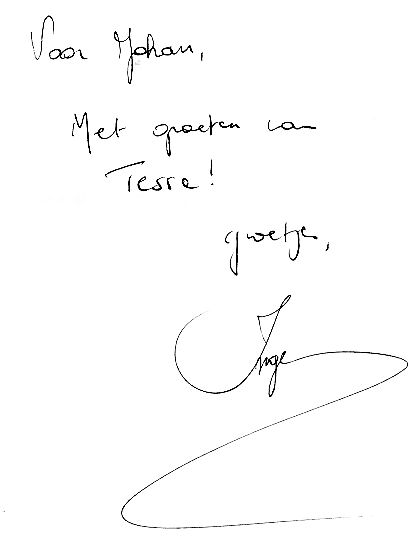 Voor Johan,
Met groeten van
Tessa!
groetjes,
Inge